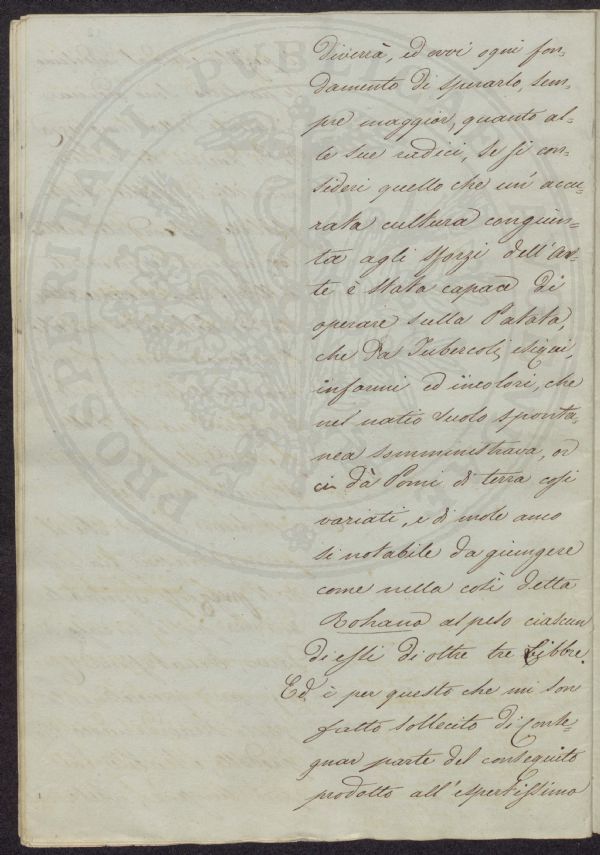 diverrà, ed evvi ogni fon=
damento di sperarlo, sem=
pre maggior, quanto al=
le sue radici, se si con=
sideri quello che un' accu=
rata cultura congiun=
ta agli sforzi dell' Ar=
te è stata capace di
operare sulla Patata,
che da Tubercoli esigui,
informi ed incolori, che
nel natio Suolo sponta=
nea somministrava, or
ci dà Pomi di terra così
variati, e di mole anco
sì notabile da giungere
come nella così detta
Rohano al peso ciascun
di essi di oltre tre Libbre.
Ed è per questo che mi son
fatto sollecito di Conse=
gnar parte del conseguito
prodotto all' espertissimo
PROSPERITATI PUBLICAE